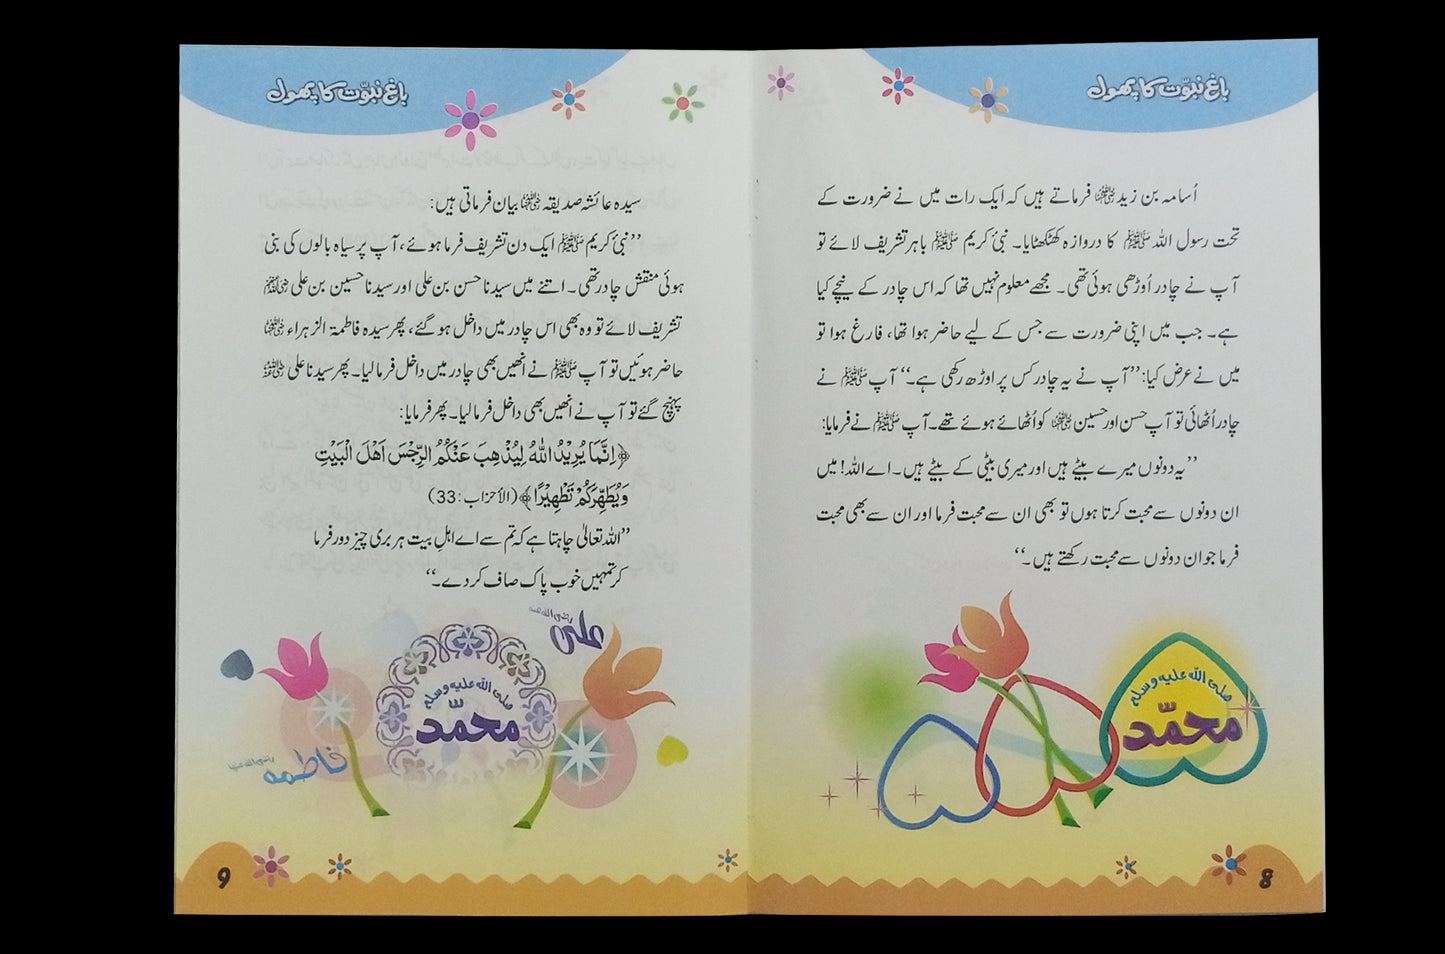 باغِ نبوّت کا پھول
اُسامہ بن زید رضی اللہ عنہما فرماتے ہیں کہ ایک رات میں نے ضرورت کے
تحت رسول اللہ ﷺ کا دروازہ کھٹکھٹایا۔ نبیٔ کریم ﷺ باہر تشریف لائے تو
آپ نے چادر اُوڑھی ہوئی تھی۔ مجھے معلوم نہیں تھا کہ اس چادر کے نیچے کیا
ہے۔ جب میں اپنی ضرورت سے جس کے لیے حاضر ہوا تھا، فارغ ہوا تو
میں نے عرض کیا: ’’آپ نے یہ چادر کس پر اوڑھ رکھی ہے۔‘‘ آپ ﷺ نے
چادر اُٹھائی تو آپ حسن اور حسین رضی اللہ عنہما کو اُٹھائے ہوئے تھے۔ آپ ﷺ نے فرمایا:
’’یہ دونوں میرے بیٹے ہیں اور میری بیٹی کے بیٹے ہیں۔ اے اللہ! میں
ان دونوں سے محبت کرتا ہوں تو بھی ان سے محبت فرما اور ان سے بھی محبت
فرما جو ان دونوں سے محبت رکھتے ہیں۔‘‘
صلی اللہ علیہ وسلم
محمّد
8
باغِ نبوّت کا پھول
سیدہ عائشہ صدیقہ رضی اللہ عنہا بیان فرماتی ہیں:
’’نبیٔ کریم ﷺ ایک دن تشریف فرما ہوئے، آپ پر سیاہ بالوں کی بنی
ہوئی منقش چادر تھی۔ اتنے میں سیدنا حسن بن علی اور سیدنا حسین بن علی رضی اللہ عنہم
تشریف لائے تو وہ بھی اس چادر میں داخل ہو گئے، پھر سیدہ فاطمۃ الزہراء رضی اللہ عنہا
حاضر ہوئیں تو آپ ﷺ نے انھیں بھی چادر میں داخل فرما لیا۔ پھر سیدنا علی رضی اللہ عنہ
پہنچ گئے تو آپ نے انھیں بھی داخل فرما لیا۔ پھر فرمایا:
﴿اِنَّمَا يُرِيْدُ اللّٰهُ لِيُذْهِبَ عَنْكُمُ الرِّجْسَ اَهْلَ الْبَيْتِ
وَيُطَهِّرَكُمْ تَطْهِيْرًا﴾ (الأحزاب: 33)
’’اللہ تعالیٰ چاہتا ہے کہ تم سے اے اہلِ بیت ہر بری چیز دور فرما
کر تمہیں خوب پاک صاف کر دے۔‘‘
رضی اللہ عنہ
علی
صلی اللہ علیہ وسلم
محمّد
رضی اللہ عنہا
فاطمہ
9